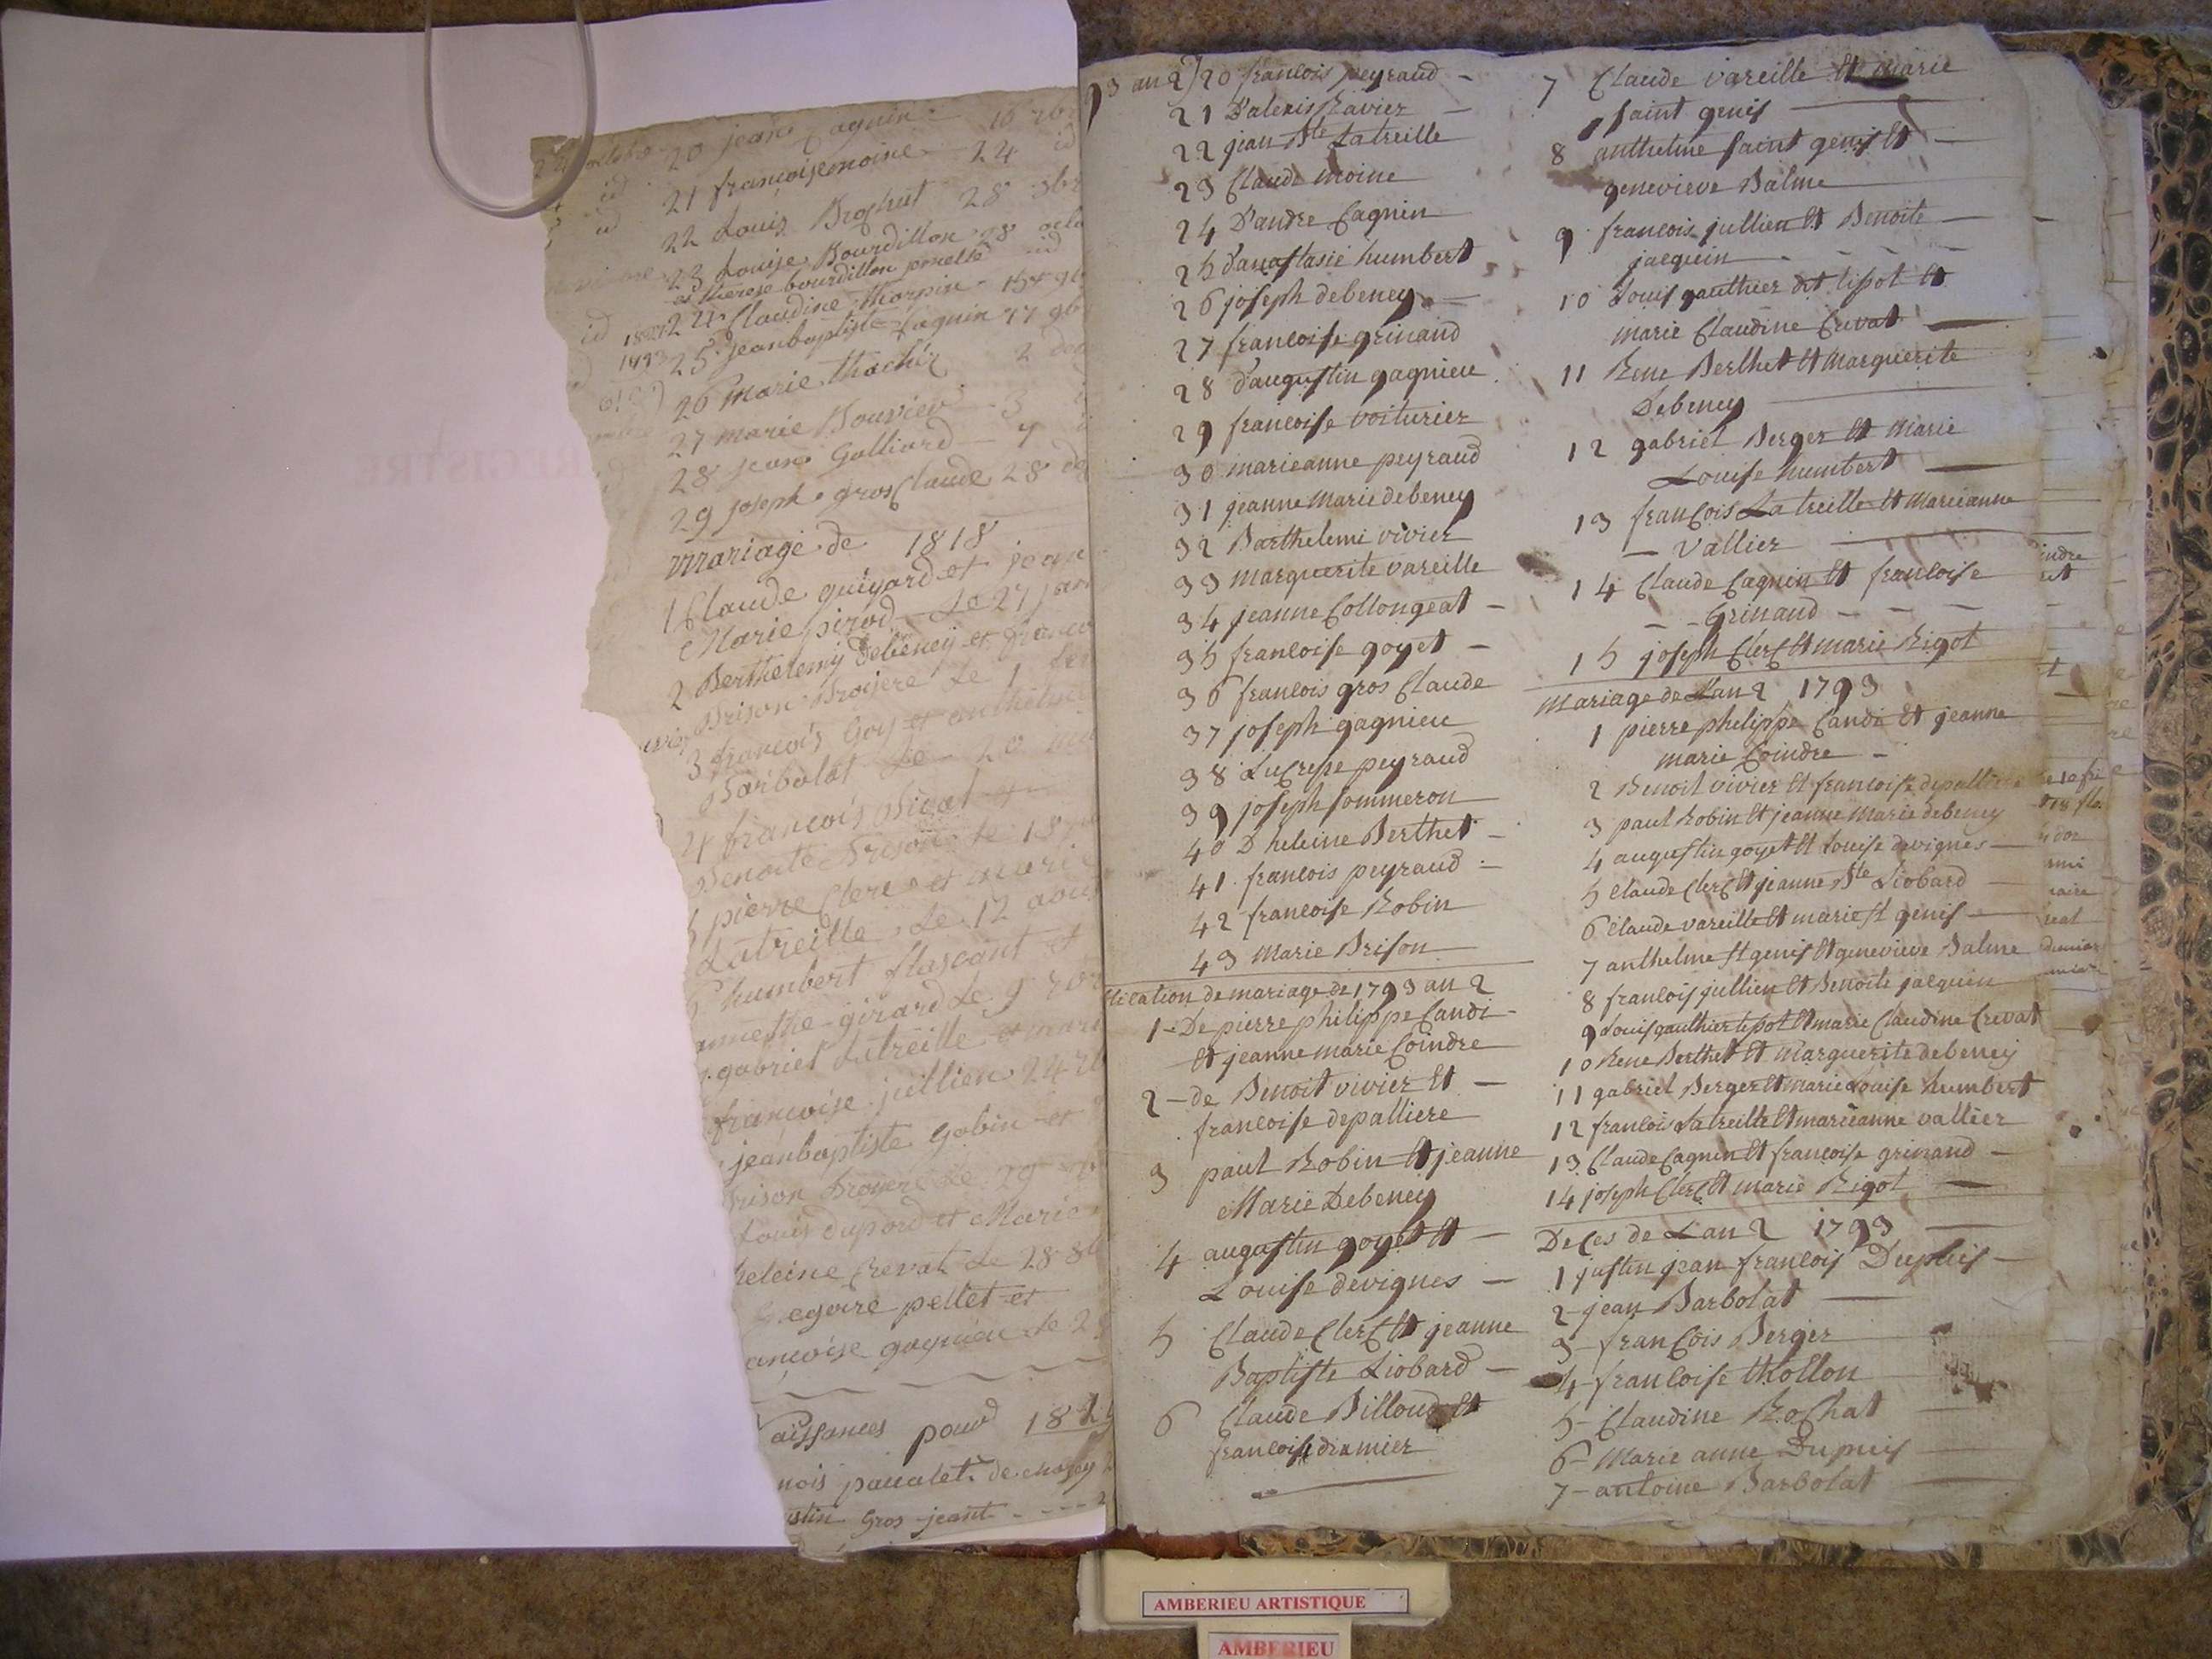 20 jean Cagnin 16
id 21 françoise moine 24 id
id 22 Louis Brophut 28
23 Louise Bourdillon 28 octo
et therese bourdillon jumelle id
id 24 Claudine thorpin 15
25 jean baptiste Cagnin 17
26 marie 2
27 marie Bouvier 3
28 jean Galliard 7
29 joseph gros Claude 28
mariage de 1818
1 Claude guigard et jean
Marie pirod Le 27 jan
2 Berthelemy Debeney et franco
Brison Broyere Le 1
3 francois Goy et anthelme
Barbolat Le 20
4 francois Bicat et
Benoite Brison Le 18
pierre Clerc et marie
Latreille Le 12 aou
humbert flascant et
girard Le 9
gabriel Latreille et mari
françoise jullien 24
jean baptiste Gobin et
Brison Broyere Le 29
Louis dupord et Marie
heleine Crevat Le 28
egoire pellet et
ancoise gagnieu Le 2
aissances pour 182
nois pacalet de
ustin Gros jeant
93 an 2 20 francois peyraud
21 D'alexis Ravier
22 jean Bte Latreille
23 Claude moine
24 D'andre Cagnin
25 d'anastasie humbert
26 joseph debeney
27 francoise grinand
28 d'augustin gagnieu
29 francoise voiturier
30 marieanne peyraud
31 jeanne Marie debeney
32 Barthelemi vivier
33 marguerite vareille
34 jeanne Collongeat
35 francoise goyet
36 francois gros Claude
37 joseph gagnieu
38 Lucresse peyraud
39 joseph sommeron
40 D heleine Berthet
41 francois peyraud
42 francoise Robin
43 Marie Brison
lication de mariage de 1793 an 2
1 De pierre philippe Candi
Et jeanne marie Coindre
2 de Benoit vivier Et
francoise depalliere
3 paul Robin Et jeanne
Marie Debeney
4 augustin goyet Et
Louise devignes
5 Claude Clerc Et jeanne
Baptiste Liobard
6 Claude Billoud Et
francoise dramier
7 Claude vareille Et marie
saint genis
8 anthelme saint genis Et
genevieve Balme
9 francois jullien Et Benoite
jacquin
10 Louis gauthier dit tipot Et
marie Claudine Crivat
11 Rene Berthet Et Marguerite
Debeney
12 gabriel Berger Et Marie
Louise humbert
13 francois Latreille Et Marieanne
Vallier
14 Claude Cagnin Et francoise
Grinand
15 joseph Clerc Et marie Rigot
Mariage de L'an 2 1793
1 pierre philippe Candi Et jeanne
marie Coindre
2 Benoit vivier Et francoise depalliere
3 paul Robin Et jeanne Marie debeney
4 augustin goyet Et Louise devignes
5 Claude Clerc Et jeanne Bte Liobard
6 Claude vareille Et marie st genis
7 anthelme st genis Et genevieve Balme
8 francois jullien Et Benoite jacquin
9 Louis gauthier tipot Et marie Claudine Crevat
10 Rene Berthet Et Marguerite debeney
11 gabriel Berger Et marie Louise humbert
12 francois Latreille Et marieanne vallier
13 Claude Cagnin Et francoise grinand
14 joseph Clerc Et marie Rigot
Deces de L'an 2 1793
1 justin jean francois Dupuis
2 jean Barbolat
3 francois Berger
4 francoise thollon
5 Claudine Rochat
6 Marie anne Dupuis
7 antoine Barbolat
AMBERIEU ARTISTIQUE
AMBERIEU